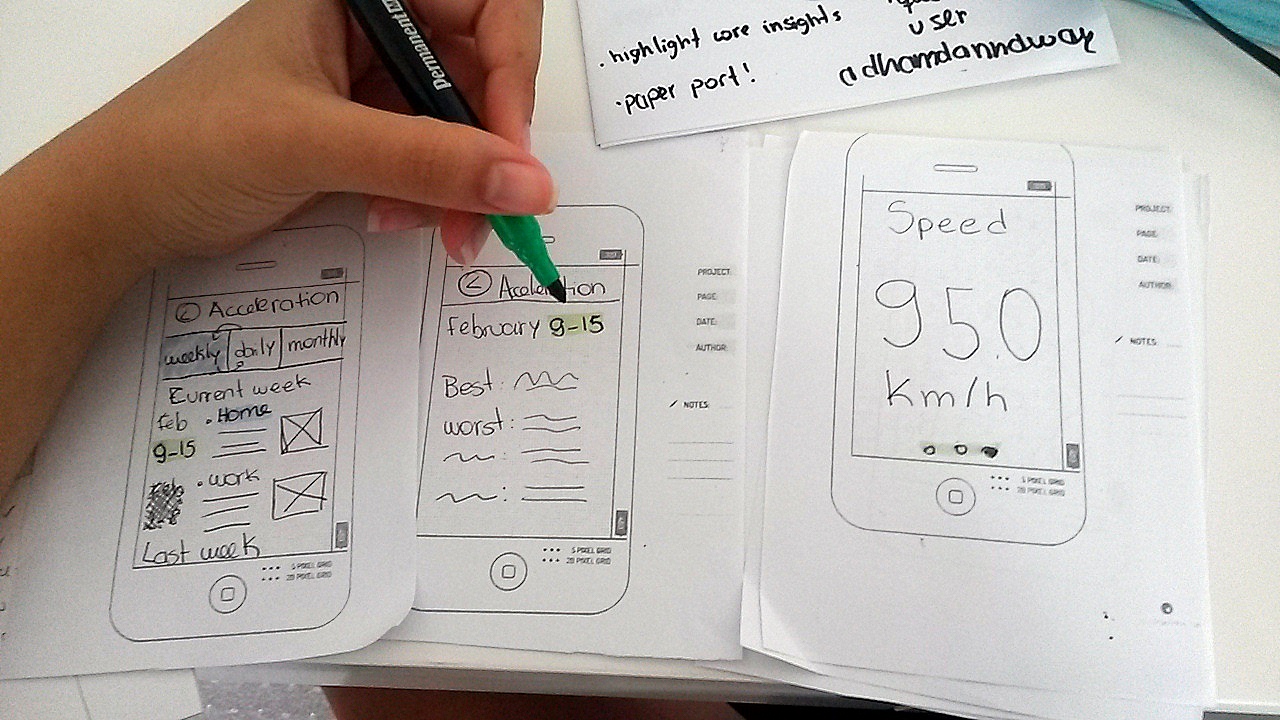 Permanent M
. highlight core insights
user
. paper port!
adhamdanndway
< Acceleration
weekly daily monthly
Current week
Feb . Home
9-15
. work
Last week
5 PIXEL GRID
20 PIXEL GRID
< Acceleration
February 9-15
Best:
worst:
5 PIXEL GRID
20 PIXEL GRID
PROJECT:
PAGE:
DATE:
AUTHOR:
NOTES:
Speed
95.0
Km/h
5 PIXEL GRID
20 PIXEL GRID
PROJECT:
PAGE:
DATE:
AUTHOR:
NOTES: